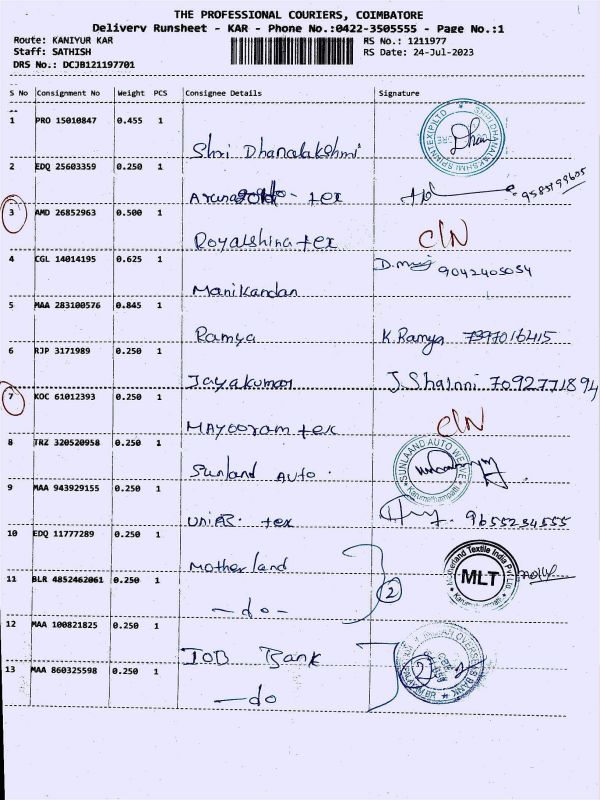 THE PROFESSIONAL COURIERS, COIMBATORE
Delivery Runsheet - KAR - Phone No.:0422-3505555 - Page No.:1
Route: KANIYUR KAR
RS No.: 1211977
Staff: SATHISH
RS Date: 24-Jul-2023
DRS No.: DCJB121197701
S No Consignment No Weight PCS Consignee Details Signature
1 PRO 15010847 0.455 1 Shri Dhanalakshmi
2 EDQ 25603359 0.250 1 tex 9585799605
3 AMD 26852963 0.500 1 Royalshina tex C/N
4 CGL 14014195 0.625 1 Manikandan 9042405054
5 MAA 283100576 0.845 1 Ramya K.Ramya 7397016415
6 RJP 3171989 0.250 1 Jayakumar J.Shalnni 7092771894
7 KOC 61012393 0.250 1 Mayooram tex C/N
8 TRZ 320520958 0.250 1 Sunland Auto. SUNLAAND AUTO WEAVE Karumathampatti
9 MAA 943929155 0.250 1 tex 9655234555
10 EDQ 11777289 0.250 1 Motherland
11 BLR 4852462061 0.250 1 -do- 2 Motherland Textile India Pvt Ltd MLT
12 MAA 100821825 0.250 1 IOB Bank
13 MAA 860325598 0.250 1 -do 2 INDIAN OVERSEAS BANK